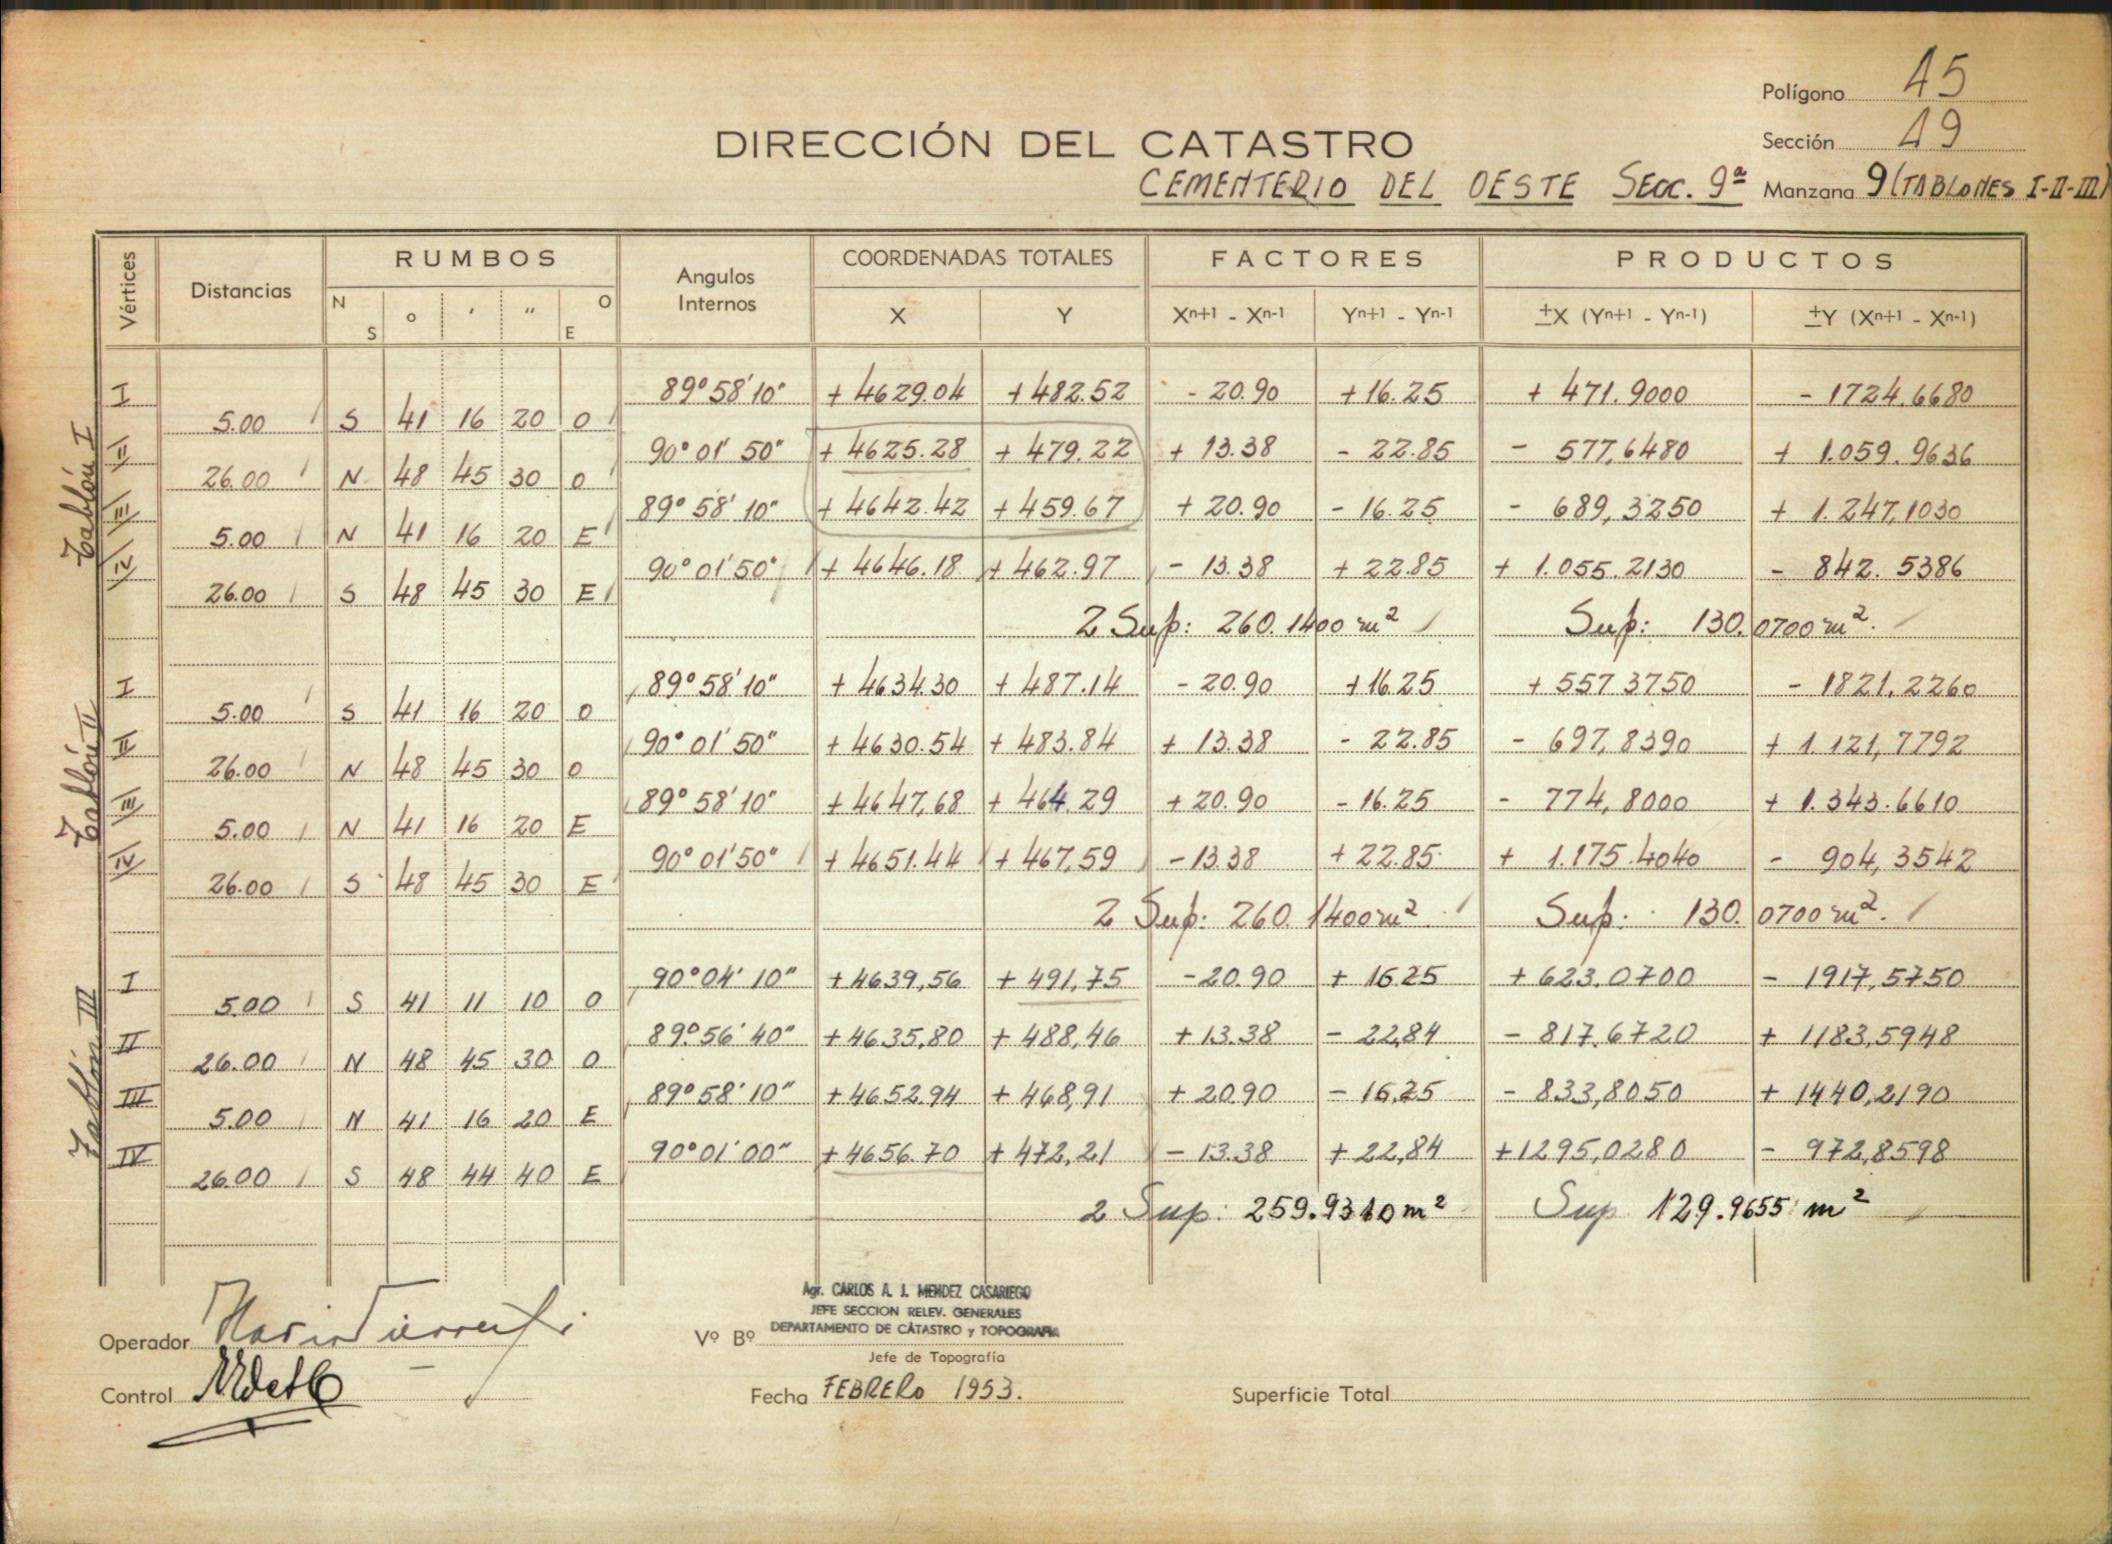 Polígono 45
DIRECCIÓN DEL CATASTRO
Sección 49
CEMENTERIO DEL OESTE SECC. 9ª Manzana 9 (TABLONES I-II-III)
Vértices Distancias RUMBOS Angulos Internos COORDENADAS TOTALES FACTORES PRODUCTOS
N S ° ' " O E X Y Xn+1 - Xn-1 Yn+1 - Yn-1 ±X (Yn+1 - Yn-1) ±Y (Xn+1 - Xn-1)
Tablón I
I 89°58'10" + 4629.04 + 482.52 - 20.90 + 16.25 + 471.9000 - 1724.6680
5.00 S 41 16 20 O
II 90°01'50" + 4625.28 + 479.22 + 13.38 - 22.85 - 577,6480 + 1.059.9636
26.00 N 48 45 30 O
III 89°58'10" + 4642.42 + 459.67 + 20.90 - 16.25 - 689,3250 + 1.247,1030
5.00 N 41 16 20 E
IV 90°01'50" + 4646.18 + 462.97 - 13.38 + 22.85 + 1.055.2130 - 842.5386
26.00 S 48 45 30 E
2 Sup: 260.1400 m² Sup: 130.0700 m².
Tablón II
I 89°58'10" + 4634.30 + 487.14 - 20.90 + 16.25 + 557 3750 - 1821,2260
5.00 S 41 16 20 O
II 90°01'50" + 4630.54 + 483.84 + 13.38 - 22.85 - 697,8390 + 1.121,7792
26.00 N 48 45 30 O
III 89°58'10" + 4647,68 + 464.29 + 20.90 - 16.25 - 774,8000 + 1.343.6610
5.00 N 41 16 20 E
IV 90°01'50" + 4651.44 + 467,59 - 13.38 + 22.85 + 1.175.4040 - 904,3542
26.00 S 48 45 30 E
2 Sup: 260.1400 m² Sup: 130.0700 m².
Tablón III
I 90°04'10" + 4639,56 + 491,75 - 20.90 + 16.25 + 623.0700 - 1917,5750
5.00 S 41 11 10 O
II 89°56'40" + 4635,80 + 488,46 + 13.38 - 22,84 - 817.6720 + 1183,5948
26.00 N 48 45 30 O
III 89°58'10" + 4652.94 + 468,91 + 20.90 - 16,25 - 833,8050 + 1440,2190
5.00 N 41 16 20 E
IV 90°01'00" + 4656.70 + 472,21 - 13.38 + 22,84 + 1295,0280 - 972,8598
26.00 S 48 44 40 E
2 Sup: 259.9310 m² Sup 129.9655 m²
Agr. CARLOS A. J. MENDEZ CASARIEGO
JEFE SECCION RELEV. GENERALES
DEPARTAMENTO DE CATASTRO y TOPOGRAFIA
Operador Vº Bº
Jefe de Topografía
Control Fecha FEBRERO 1953. Superficie Total